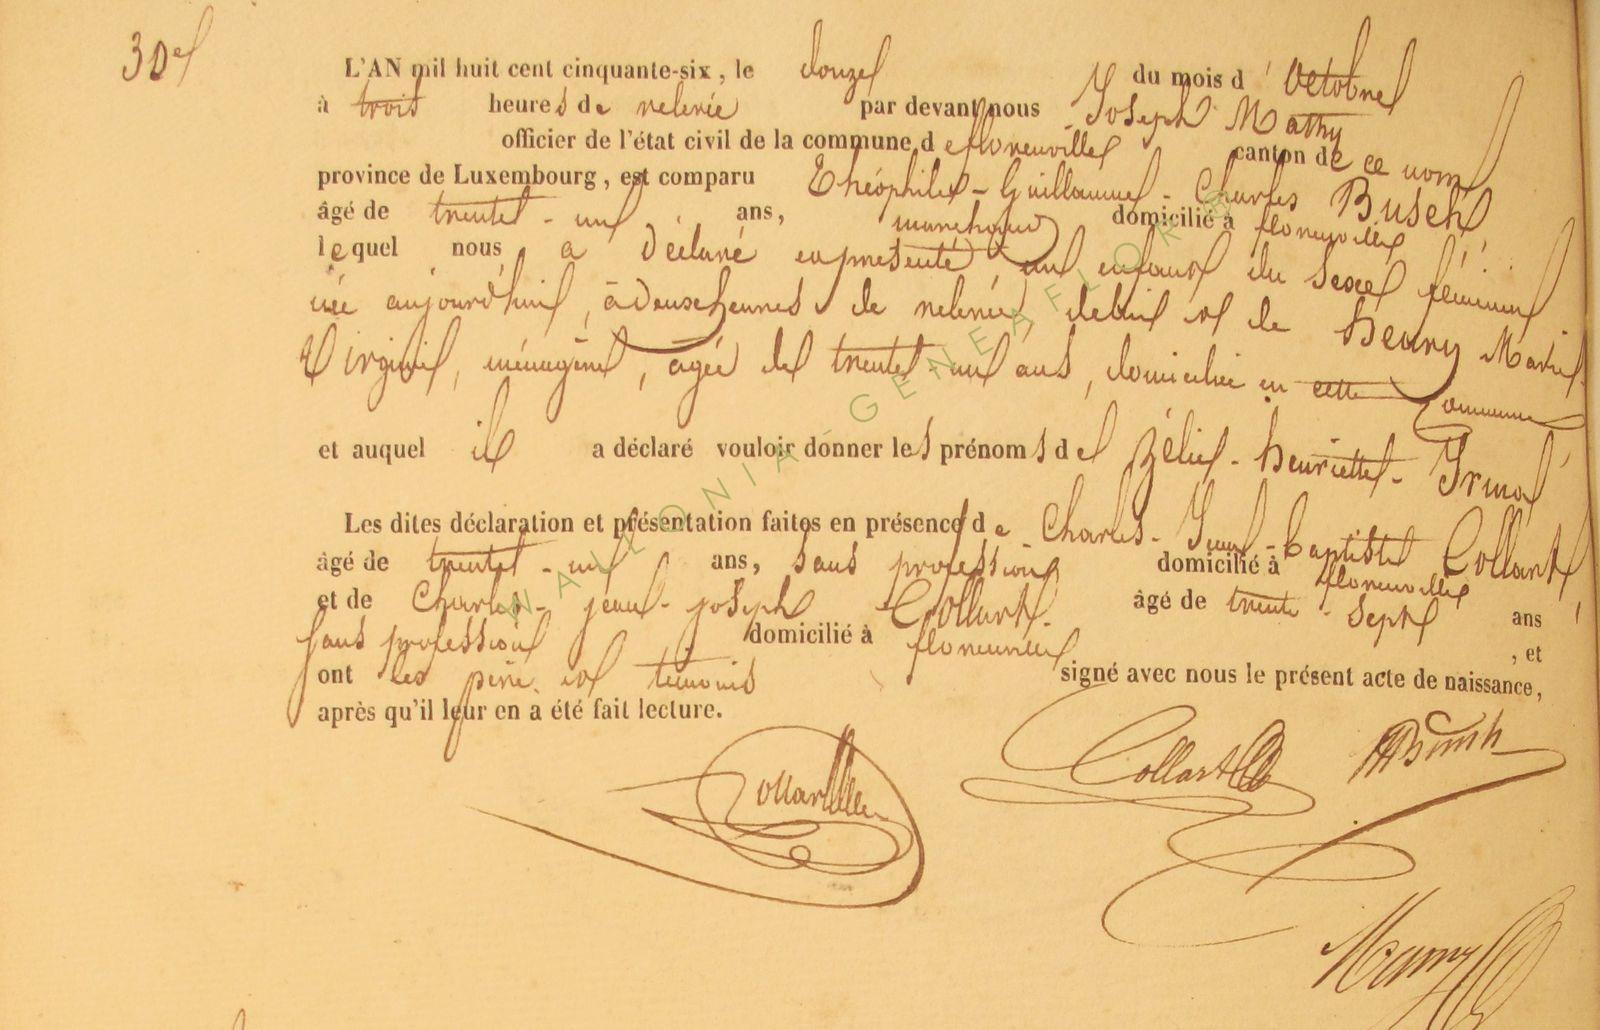 30e
L'AN mil huit cent cinquante-six, le douze du mois d'Octobre
à trois heures de relevée par devant nous Joseph Mathy
officier de l'état civil de la commune de florenville canton de ce nom
province de Luxembourg, est comparu Théophile-Guillaume-Charles Busch,
âgé de trente-un ans, domicilié à florenville
lequel nous a déclaré et présenté un enfant du sexe féminin
née aujourd'hui, à deux heures de relevée, de lui et de henry Marie
Virginie, ménagère, âgée de trente un ans, domiciliée en cette commune
et auquel il a déclaré vouloir donner les prénoms de Zélie-henriette-Irma
Les dites déclaration et présentation faites en présence de Charles-Jean-baptiste Collart
âgé de trente-un ans, sans profession domicilié à florenville
et de Charles-jean-joseph Collart âgé de trente-sept ans
sans profession domicilié à florenville, et
ont les père et témoins signé avec nous le présent acte de naissance,
après qu'il leur en a été fait lecture.
Collart Busch
WALLONIA-GENEAFLORE